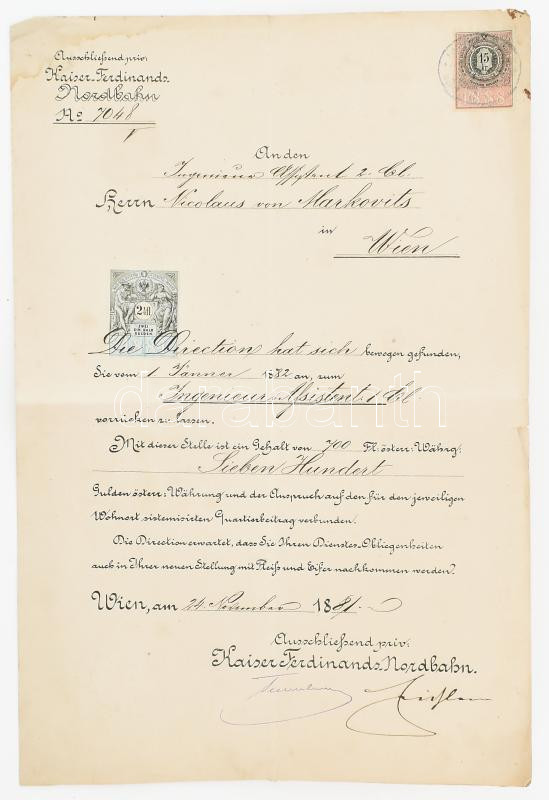 Ausschließend priv:
Kaiser-Ferdinands-
Nordbahn
No 7048
15
1888
An den
Ingenieur Assistent 2. Cl.
Herrn Nicolaus von Markovits
in
Wien
2 ½ fl.
Die Direction hat sich bewogen gefunden,
Sie vom 1 Jänner 1882 an, zum
Ingenieur-Assistent 1 Cl.
vorrücken zu lassen.
Mit dieser Stelle ist ein Gehalt von 700 Fl. österr: Währg:
Sieben Hundert
Gulden österr: Währung und der Anspruch auf den für den jeweiligen
Wohnort sistemisirten Quartierbeitrag verbunden.
Die Direction erwartet, dass Sie Ihren Dienstes-Obliegenheiten
auch in Ihrer neuen Stellung mit Fleiß und Eifer nachkommen werden.
Wien, am 24. November 1881.
Ausschließend priv:
Kaiser Ferdinands-Nordbahn.
darabanth